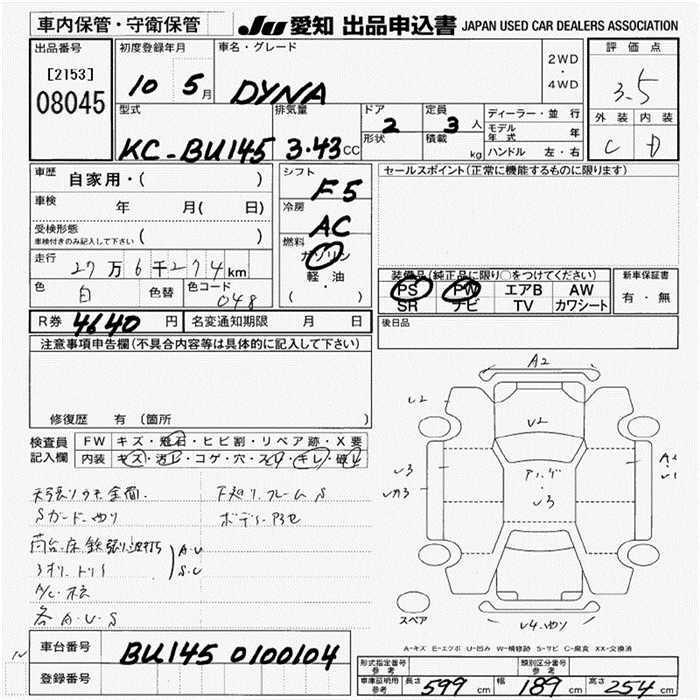 車内保管・守衛保管
JU 愛知 出品申込書 JAPAN USED CAR DEALERS ASSOCIATION
出品番号
[2153]
08045
初度登録年月
10 5月
車名・グレード
DYNA
2WD
・
4WD
評価点
3.5
外装 内装
C D
型式
KC-BU145
排気量
3.43CC
ドア
2
形状
定員
3人
積載
kg
ディーラー・並行
モデル年式 年
ハンドル 左・右
車歴 自家用・( )
車検 年 月( 日)
受検形態
車検付きのみ記入して下さい ( )
走行 27万6千274km
色 白 色替 色コード 048
シフト
F5
冷房
AC
燃料
ガソリン
軽・油
( ・ )
セールスポイント(正常に機能するものに限ります)
装備品(純正品に限り○をつけてください)
PS PW エアB AW
SR ナビ TV カワシート
新車保証書
有・無
R券 4640円 名変通知期限 月 日
後日品
注意事項申告欄(不具合内容等は具体的に記入して下さい)
修復歴 有 (箇所 )
検査員記入欄
FW キズ・飛石・ヒビ割・リペア跡・X要
内装 キズ・汚レ・コゲ・穴・スレ・キレ・破レ
天張りウキ全面. 下廻り.フレームS
Sガード.ユガリ
荷台.床鉄張り
A.U
S.C
各A.U.S
A2
U2
U2
U3
U3
スペア
A-キズ E-エクボ U-凹み W-補修跡 S-サビ C-腐食 XX-交換済
車台番号 BU145 0100104
登録番号
形式指定番号 参考
類別区分番号 参考
車庫証明用参考 長さ 599cm 幅 189cm 高さ 254cm